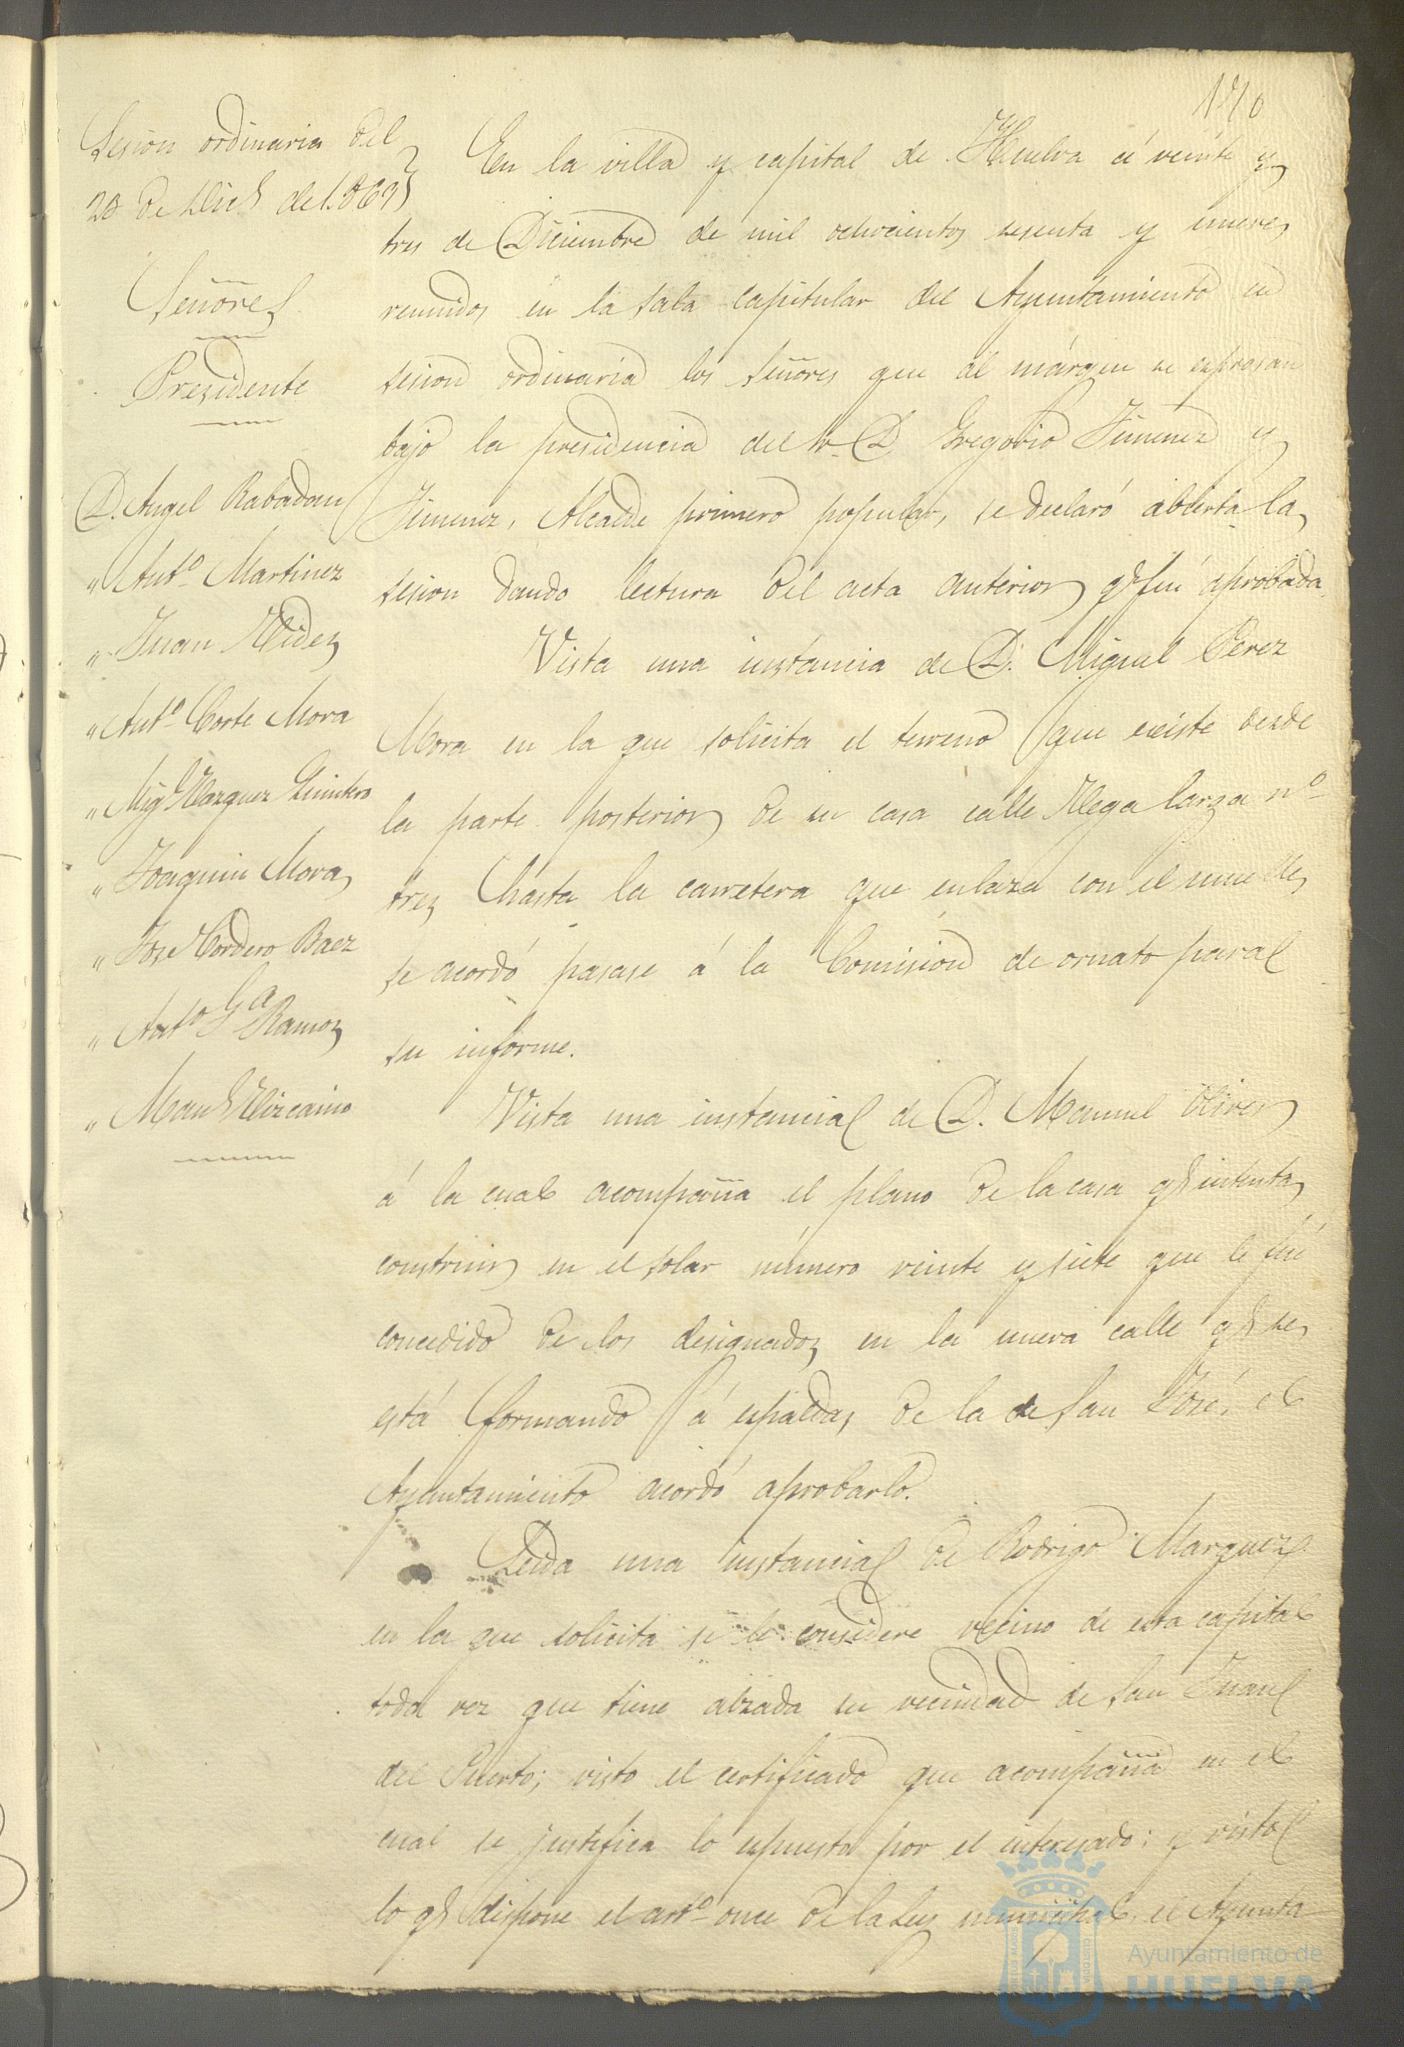 170
Sesion ordinaria del
23 de Dic.e de 1.869
Señores
Presidente
D. Angel Rabadan
" Ant.o Martinez
" Juan Videz
" Ant.o Corte Mora
" Mig.l Vazquez Quintero
" Joaquin Mora
" Jose Cordero Baez
" Ant.o G.a Ramoz
" Man.l Vizcaino
En la villa y capital de Huelva á veinte y
tres de Diciembre de mil ochocientos sesenta y nueve
reunidos en la sala capitular del Ayuntamiento en
sesion ordinaria los Señores que al márgen se espresan
bajo la presidencia del Sr. D Gregorio Jimenez y
Jimenez, Alcalde primero popular, se declaró abierta la
sesion dando lectura del acta anterior q.e fué aprobada.
Vista una instancia de D. Miguel Perez
Mora en la que solicita el terreno que existe desde
la parte posterior de su casa calle Vega larga n.o
tres hasta la carretera que enlaza con el muelle
se acordó pasase á la Comision de ornato para
su informe.
Vista una instancia de D. Manuel Oliver
á la cual acompaña el plano de la casa q.e intenta
construir en el solar número veinte y siete que le fué
concedido de los designados en la nueva calle q.e se
está formando á espaldas de la de San José, el
Ayuntamiento acordó aprobarlo.
Leida una instancia de Rodrigo Marquez
en la que solicita se le considere vecino de esta capital
toda vez que tiene alzada su vecindad de San Juan
del Puerto; visto el certificado que acompaña en el
cual se justifica lo espuesto por el interesado; y visto
lo q.e dispone el art.o once de la Ley municipal, el Ayunta
Ayuntamiento de
HUELVA